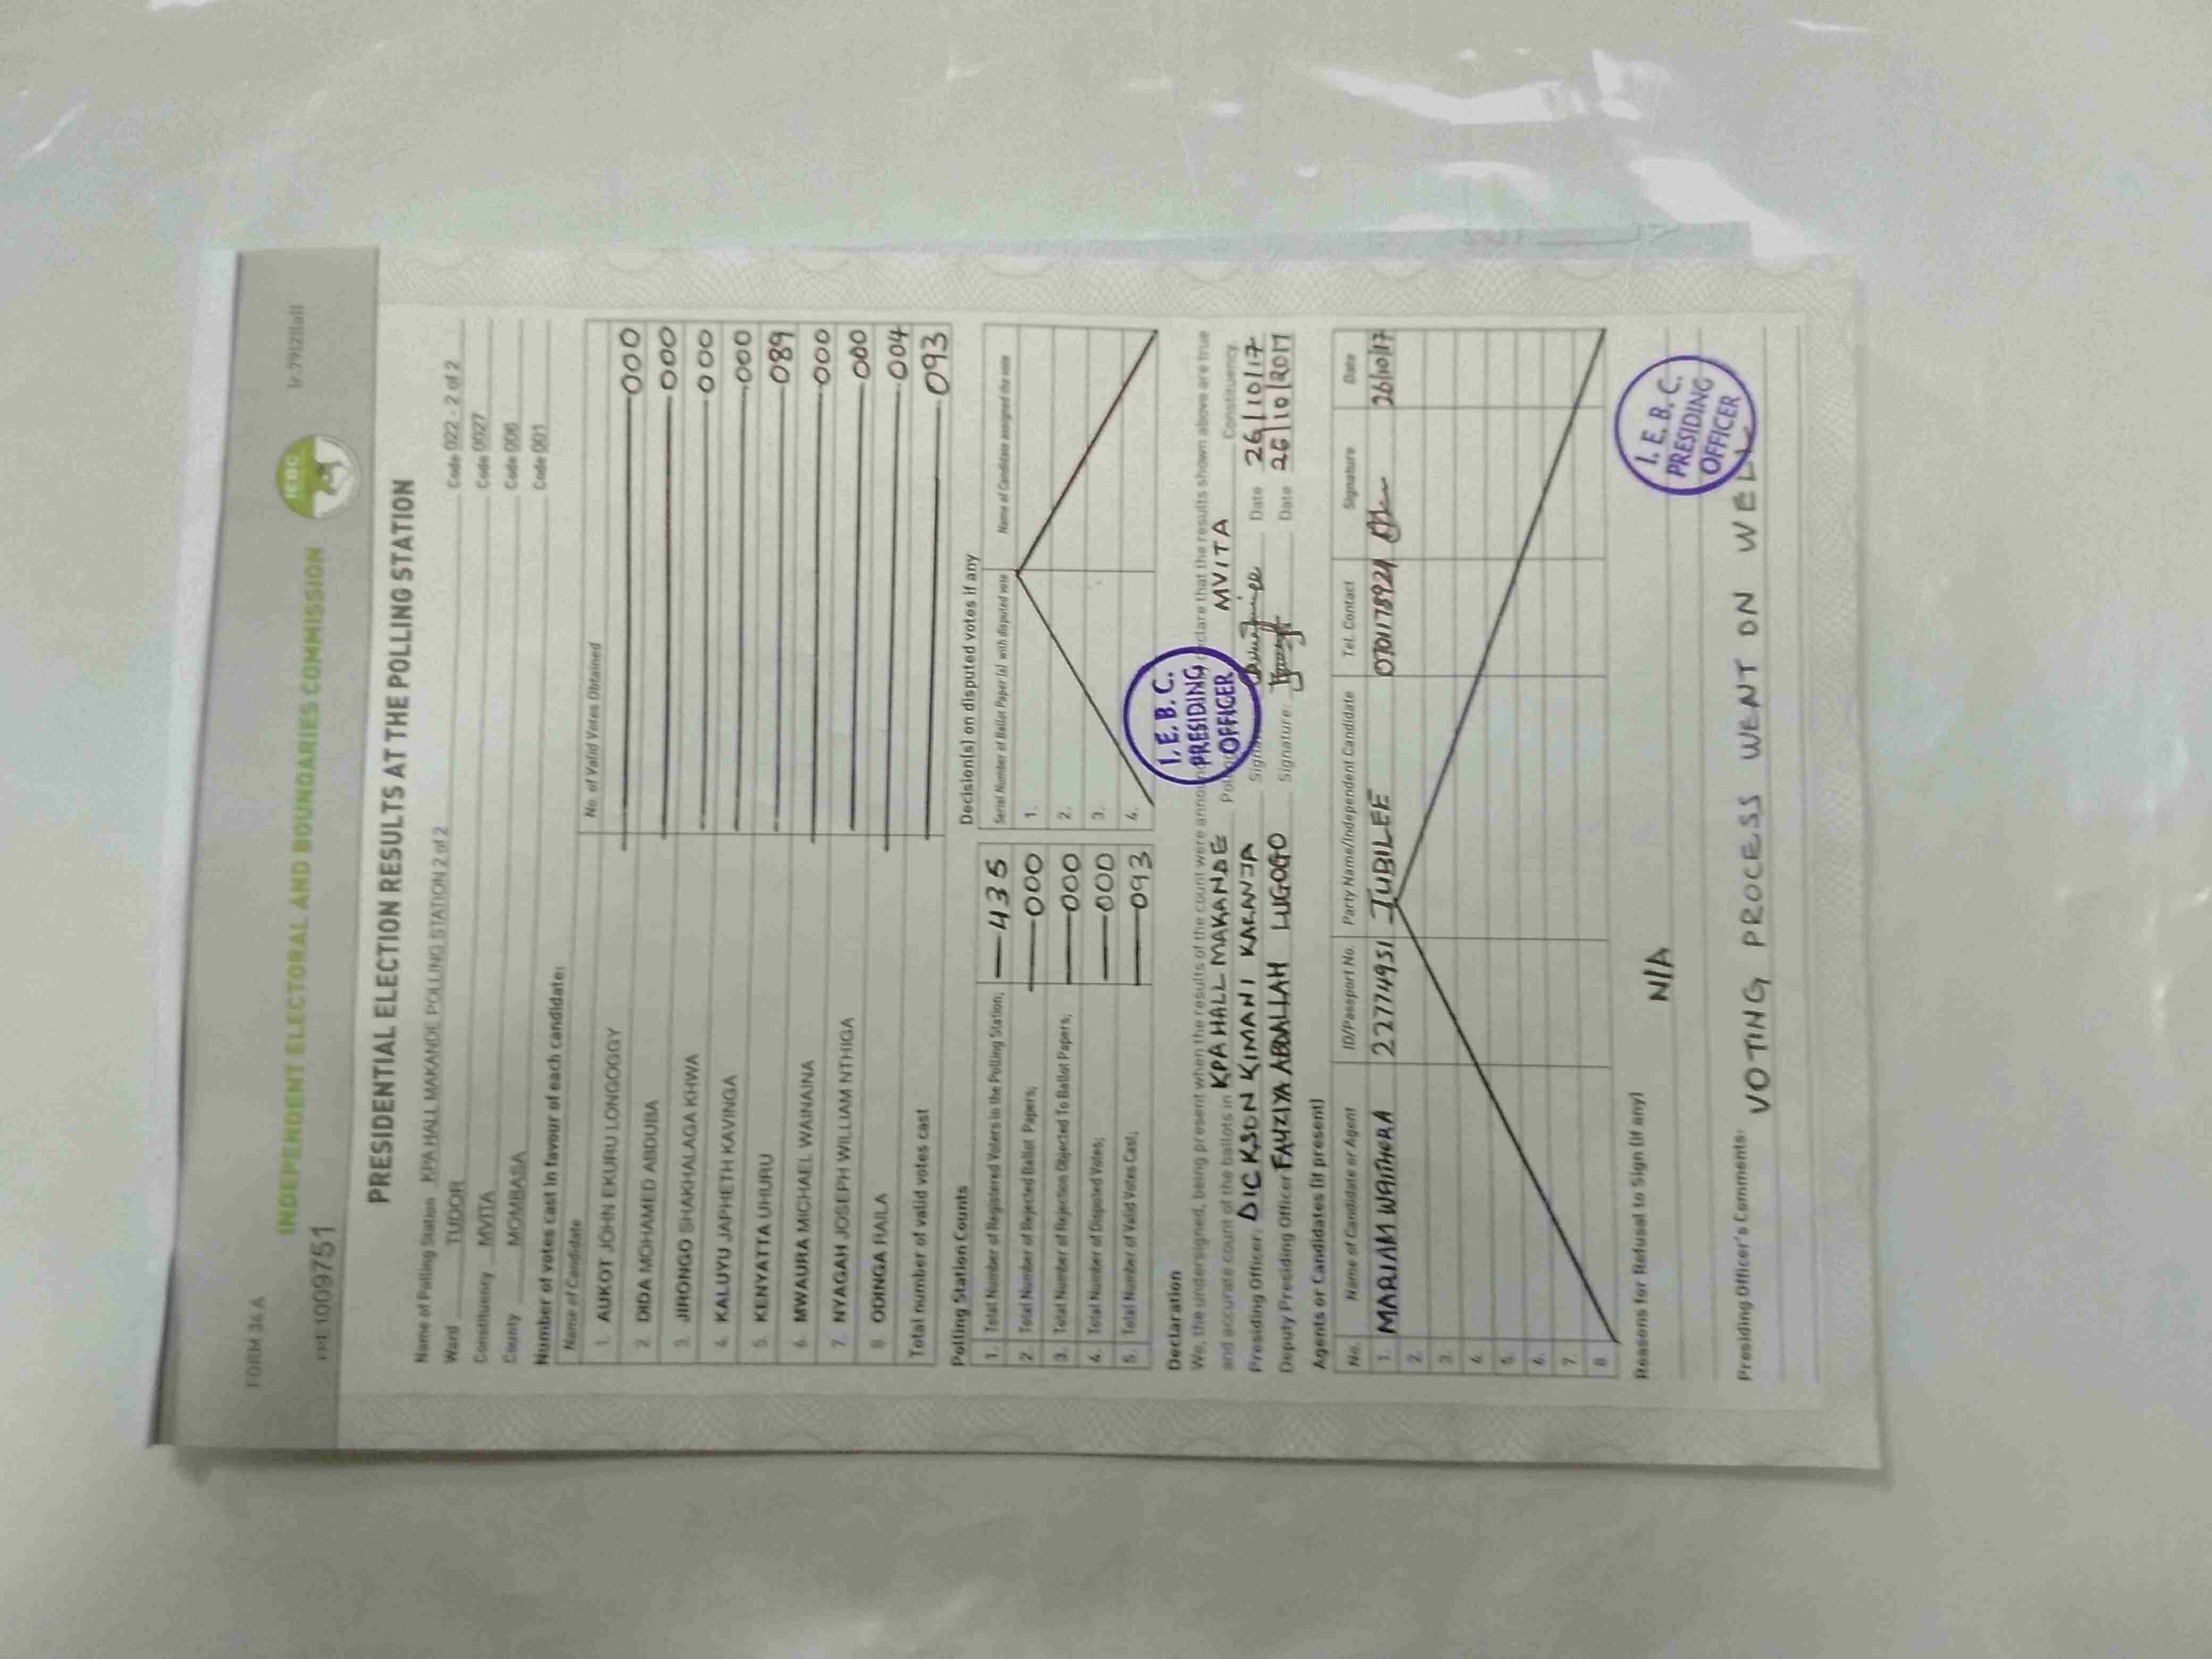 FORM 34 A
r.79(2)(a)
INDEPENDENT ELECTORAL AND BOUNDARIES COMMISSION
IEBC
1009751
PRESIDENTIAL ELECTION RESULTS AT THE POLLING STATION
Name of Polling Station KPA HALL MAKANDE POLLING STATION 2 of 2 Code 022 - 2 of 2
Ward TUDOR Code 0027
Constituency MVITA Code 006
County MOMBASA Code 001
Number of votes cast in favour of each candidate:
Name of Candidate No. of Valid Votes Obtained
1. AUKOT JOHN EKURU LONGOGGY 000
2. DIDA MOHAMED ABDUBA 000
3. JIRONGO SHAKHALAGA KHWA 000
4. KALUYU JAPHETH KAVINGA 000
5. KENYATTA UHURU 089
6. MWAURA MICHAEL WAINAINA 000
7. NYAGAH JOSEPH WILLIAM NTHIGA 000
8. ODINGA RAILA 004
Total number of valid votes cast 093
Polling Station Counts
1. Total Number of Registered Voters in the Polling Station; 435
2. Total Number of Rejected Ballot Papers; 000
3. Total Number of Rejection Objected To Ballot Papers; 000
4. Total Number of Disputed Votes; 000
5. Total Number of Valid Votes Cast; 093
Decision(s) on disputed votes if any
Serial Number of Ballot Paper (s) with disputed vote Name of Candidate assigned the vote
1.
2.
3.
4.
Declaration
We, the undersigned, being present when the results of the count were announ declare that the results shown above are true
and accurate count of the ballots in KPA HALL MAKANDE Polling MVITA Constituency.
Presiding Officer: DICKSON KIMANI KARANJA Date 26/10/17
Deputy Presiding Officer FAUZIYA ABDALLAH LUGOGO Signature: Date 26/10/2017
I. E. B. C.
PRESIDING
OFFICER
Agents or Candidates (if present)
No. Name of Candidate or Agent ID/Passport No. Party Name/Independent Candidate Tel. Contact Signature Date
1. MARIAM WAITHERA 22774951 JUBILEE 0701178924 26/10/17
2.
3.
4.
5.
6.
7.
8
Reasons for Refusal to Sign (if any)
N/A
I. E. B. C.
PRESIDING
OFFICER
Presiding Officer's Comments: VOTING PROCESS WENT ON WELL